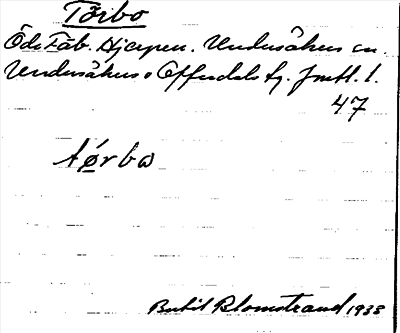 Törbo
Öde Fäb. Hjerpen. Undersåkers sn.
Undersåkers o Offerdals tg. Jmtl. l.
47
tǿrbω
Bertil Blomstrand 1938